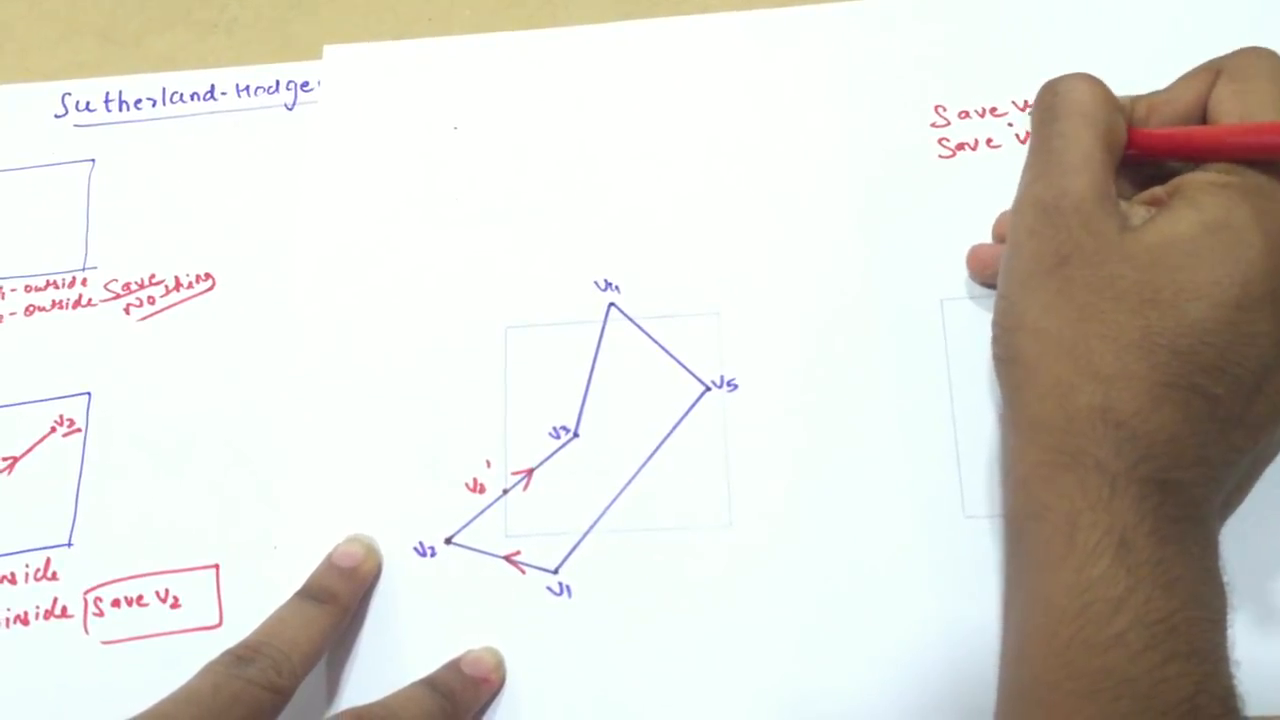 Sutherland-Hodge
-outside Save
-outside Nothing
V2
nside
inside Save V2
V4
V5
V3
V2'
V2
V1
Save
Save